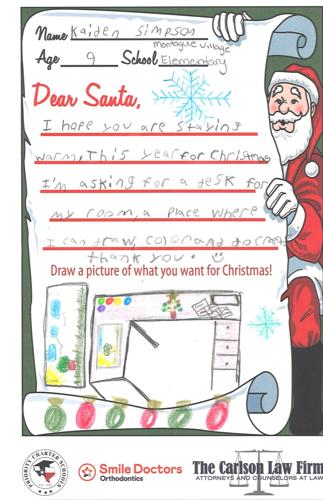 Name Kaiden Simpson
Age 9 School Montague Village
Elementary
Dear Santa,
I hope you are staying
warm, This year for Christmas
I'm asking for a desk for
my room, a place where
I can draw, color and do crafts
thank you.
Draw a picture of what you want for Christmas!
PRIORITY CHARTER SCHOOLS
Smile Doctors
Orthodontics
The Carlson Law Firm
ATTORNEYS AND COUNSELORS AT LAW